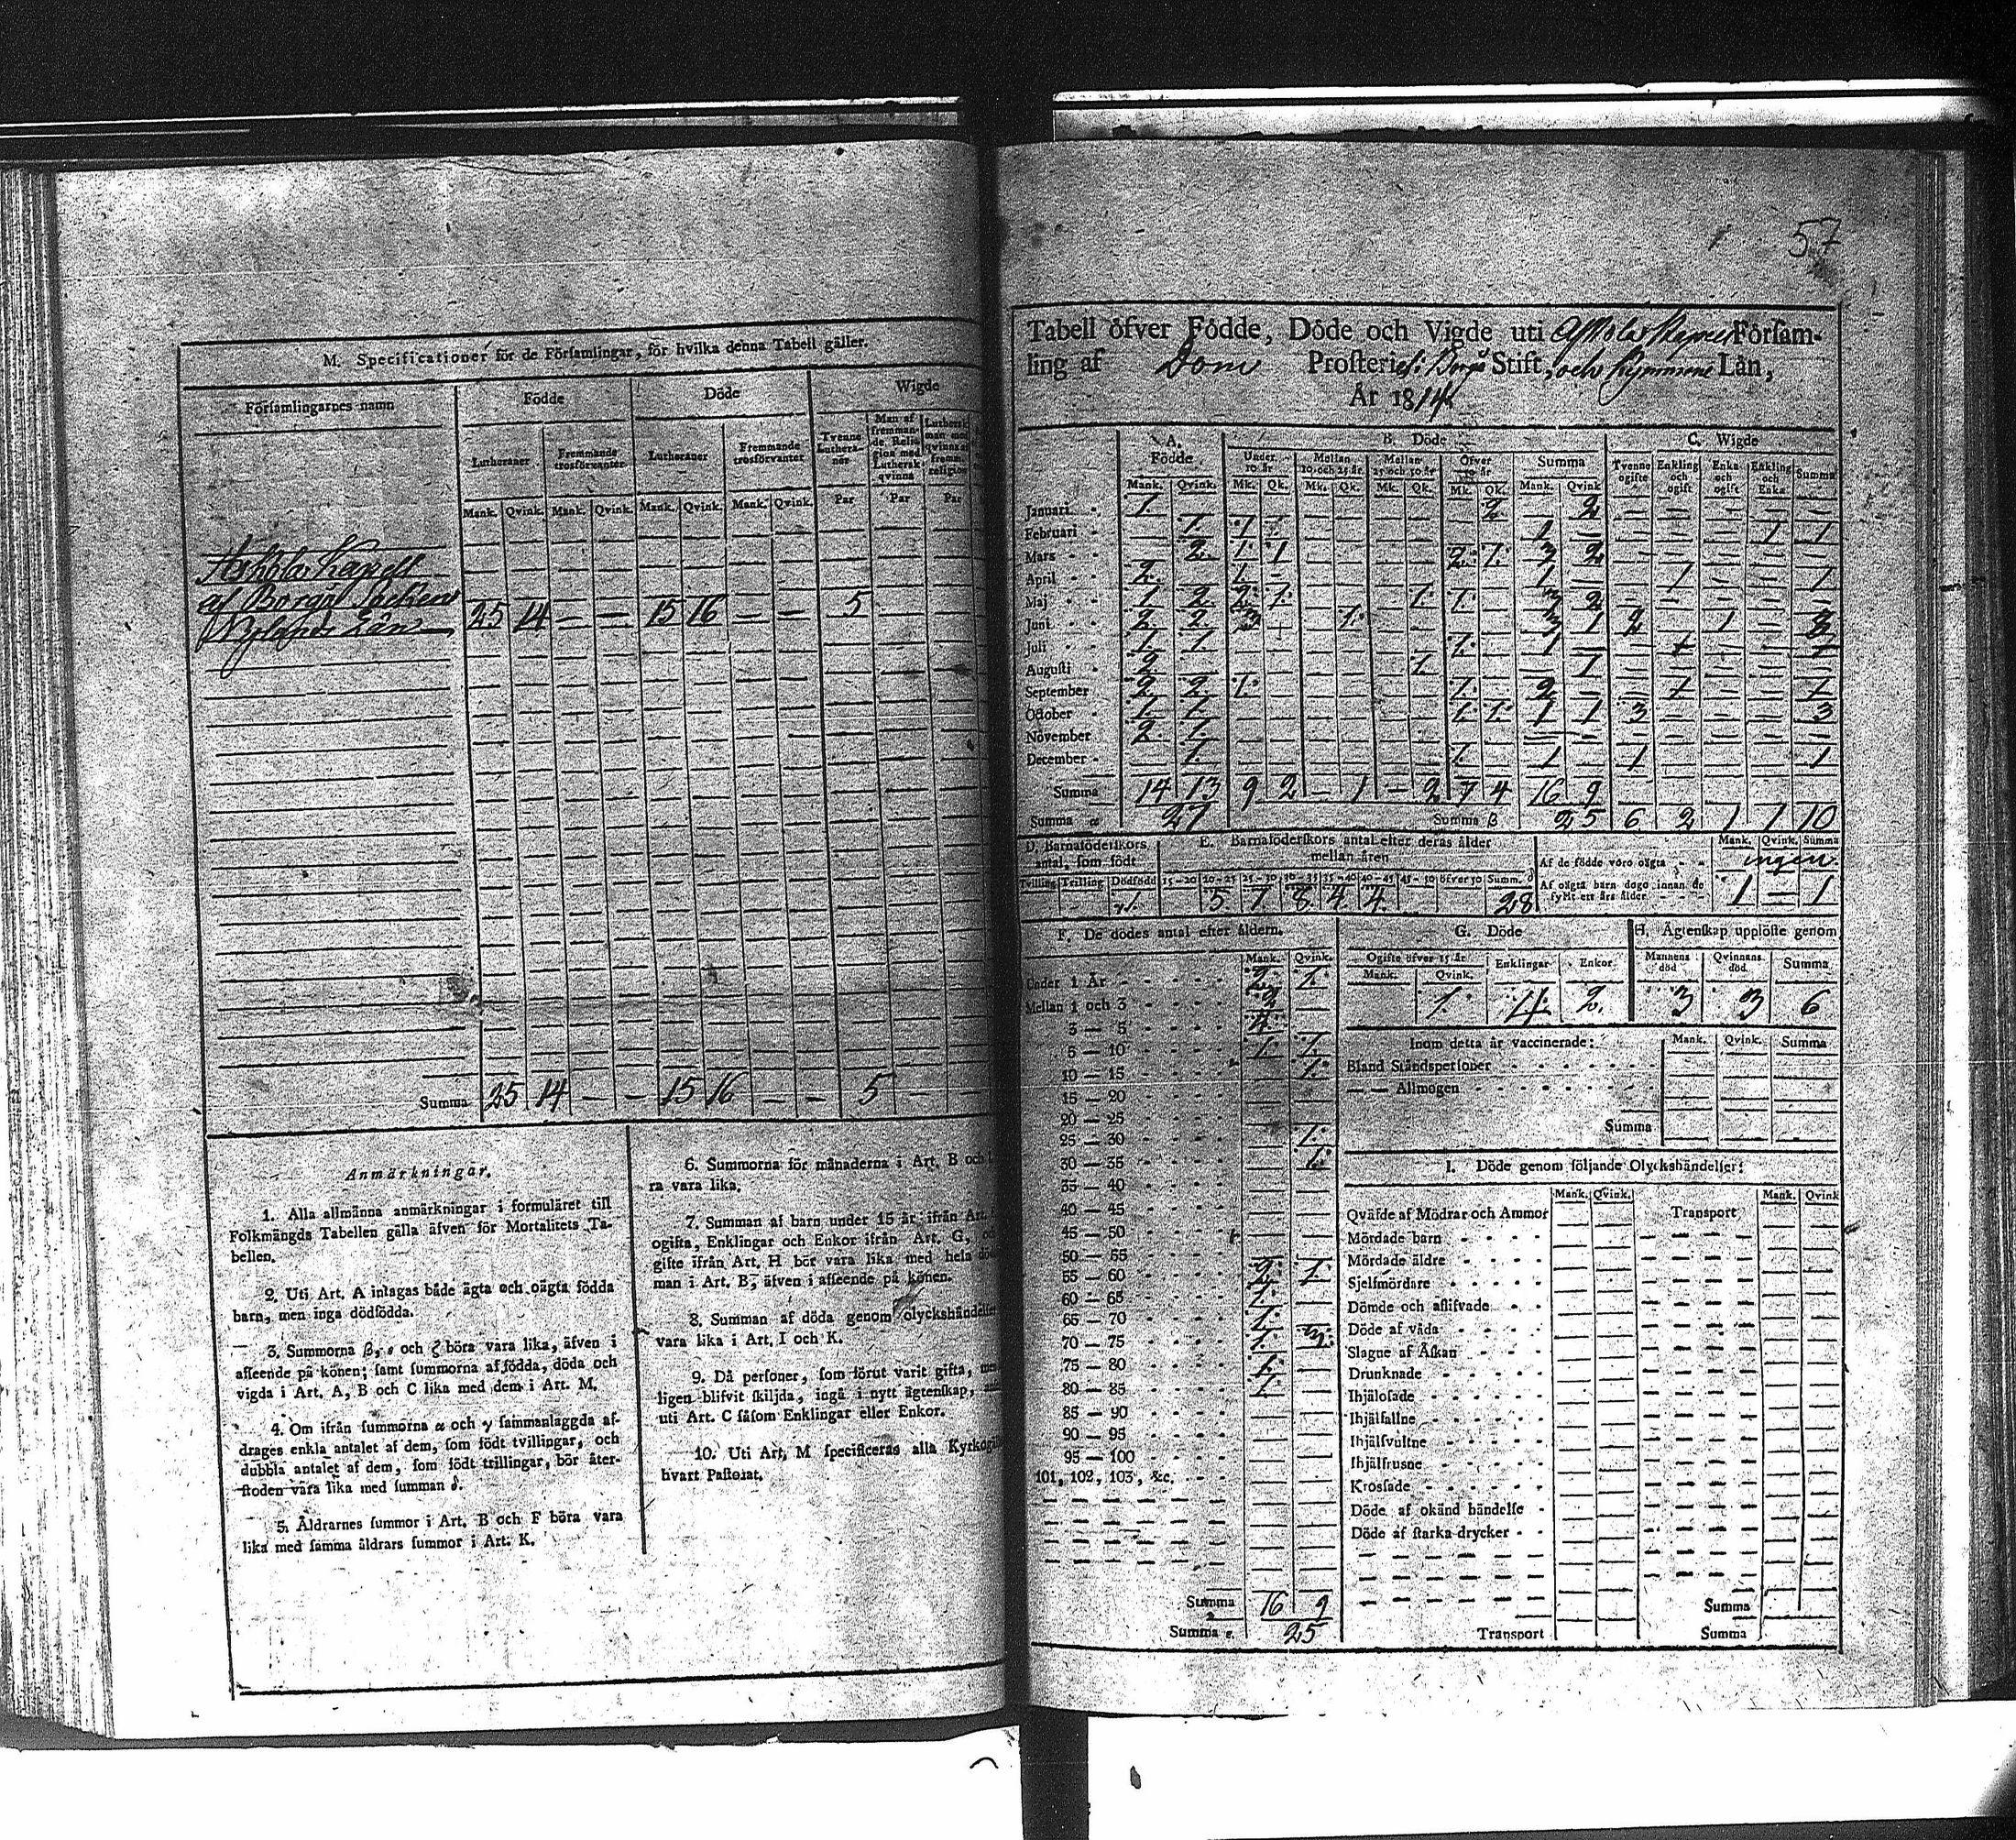 M. Specificationer för de Församlingar, för hvilka denna Tabell gäller.
Församlingarnes namn
Födde
Döde
Wigde
Lutheraner
Fremmande trosförvanter
Lutheraner
Fremmande trosförvanter
Tvenne Lutheraner
Man af fremmande Religion med Luthersk qvinna
Mank. Qvink. Mank. Qvink. Mank. Qvink. Mank. Qvink. Par Par Par
Askola Kapell
af Borgå Sockens
Nylands Län 25 14 — — 15 16 — — 5
Summa 25 14 — — 15 16 — — 5 — —
Anmärkningar.
1. Alla allmänna anmärkningar i formuläret till
Folkmängds Tabellen gälla äfven för Mortalitets Ta-
bellen.
2. Uti Art. A intagas både ägta och oägta födda
barn, men inga dödfödda.
3. Summorna β, ε och ζ böra vara lika, äfven i
afseende på könen; samt summorna af födda, döda och
vigda i Art. A, B och C lika med dem i Art. M.
4. Om ifrån summorna α och γ sammanlaggda af-
drages enkla antalet af dem, som födt tvillingar, och
dubbla antalet af dem, som födt trillingar, bör åter-
stoden vara lika med summan δ.
5. Åldrarnes summor i Art. B och F böra vara
lika med samma åldrars summor i Art. K.
6. Summorna för månaderna i Art. B och
ra vara lika.
7. Summan af barn under 15 år ifrån Art.
ogifta, Enklingar och Enkor ifrån Art. G,
gifte ifrån Art. H bör vara lika med hela
man i Art. B, äfven i afseende på könen.
8. Summan af döda genom olyckshändelser
vara lika i Art. I och K.
9. Då personer, som förut varit gifta, men
ligen blifvit skiljda, ingå i nytt ägtenskap,
uti Art. C såsom Enklingar eller Enkor.
10. Uti Art. M specificeras alla
hvart Pastorat.
57
Tabell öfver Födde, Döde och Vigde uti Askola Kapell Församling
ling af Dom Prosteri, Borgå Stift, och Kymmene Län,
År 1814
A. Födde B. Döde C. Wigde
Under 10 år Mellan 10 och 25 år Mellan 25 och 50 år Öfver 50 år Summa Tvenne ogifte Enkling och ogift Enka och ogift Enkling och Enka Summa
Mank. Qvink. Mk. Qk. Mk. Qk. Mk. Qk. Mk. Qk. Mank. Qvink.
Januari 1 2 2
Februari 1 1 1 1 1
Mars 2 1 1 2 1 3 2
April 2 1 1 1 1
Maj 1 2 2 1 1 1 3 2
Juni 2 2 3 1 3 1 2 1 3
Juli 1 1 1 1
Augusti 2 1 1
September 2 2 1 1 2 1 1
October 1 1 1 1 1 1 3 3
November 2 1
December 1 1 1 1 1
Summa 14 13 9 2 — 1 — 2 7 4 16 9
Summa α 27 Summa β 25 6 2 1 1 10
D. Barnaföderskors antal, som födt
E. Barnaföderskors antal efter deras ålder mellan åren
Tvilling Trilling Dödfödd 15-20 20-25 25-30 30-35 35-40 40-45 45-50 öfver 50 Summ. δ
5 7 8 4 4 28
Mank. Qvink. Summa
Af de födde voro oägta ingen.
Af oägta barn dogo innan de fyllt ett års ålder 1 — 1
F. De dödes antal efter åldern.
Mank. Qvink.
Under 1 År 2 1
Mellan 1 och 3 2
3 — 5 4
5 — 10 1 1
10 — 15 1
15 — 20
20 — 25
25 — 30 1
30 — 35 1
35 — 40
40 — 45
45 — 50
50 — 55
55 — 60 2 1
60 — 65 1
65 — 70 1
70 — 75 1 3
75 — 80 1
80 — 85 1
85 — 90
90 — 95
95 — 100
101, 102, 103, &c.
Summa 16 9
Summa ε. 25
G. Döde
Ogifte öfver 15 år Enklingar Enkor
Mank. Qvink.
1 4 2
H. Ägtenskap upplöste genom
Mannens död Qvinnans död Summa
3 3 6
Inom detta år vaccinerade: Mank. Qvink. Summa
Bland Ståndspersoner
— — Allmogen
Summa
I. Döde genom följande Olyckshändelser:
Mank. Qvink. Mank. Qvink
Qväfde af Mödrar och Ammor Transport
Mördade barn
Mördade äldre
Sjelfmördare
Dömde och aflifvade
Döde af våda
Slagne af Åskan
Drunknade
Ihjälosade
Ihjälfallne
Ihjälsvultne
Ihjälfrusne
Krossade
Döde af okänd händelse
Döde af starka drycker
Summa
Transport Summa